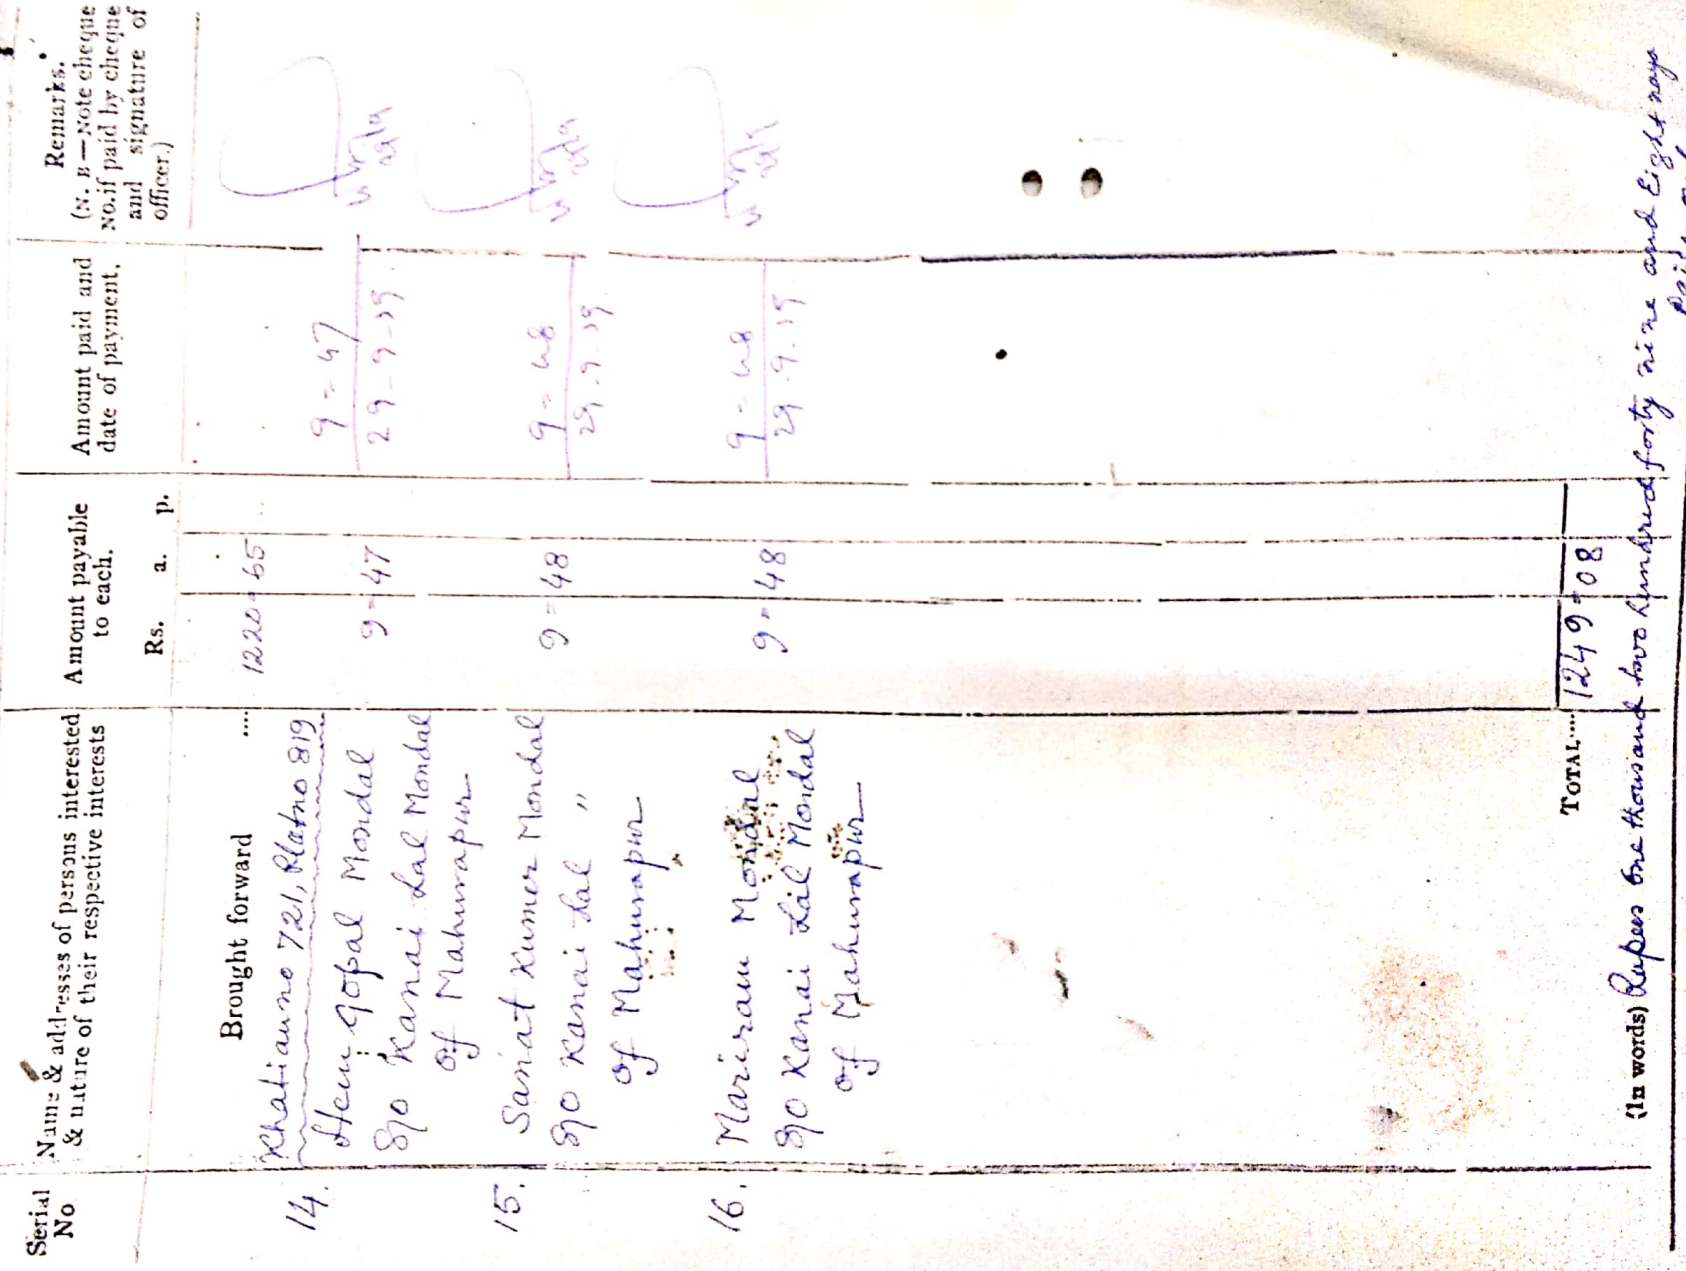 Serial No
Name & addresses of persons interested & nature of their respective interests
Amount payable to each.
Rs. a. p.
Amount paid and date of payment.
Remarks.
(N. B—Note cheque No. if paid by cheque and signature of officer.)
Brought forward .... 1220=65
Khatian no 721, Plot no 819
14. Hem Gopal Mondal
S/o Kanai Lal Mondal
of Mahurapur
9=47
9=47
29-9-59
15. Sanat Kumer Mondal
S/o Kanai Lal "
of Mahurapur
9=48
9=48
29.9.59
16. Mariram Mondal
S/o Kanai Lal Mondal
of Mahurapur
9=48
9=48
29.9.59
TOTAL.... 1249=08
(In words) Rupees One thousand two hundred forty nine and Eight naya